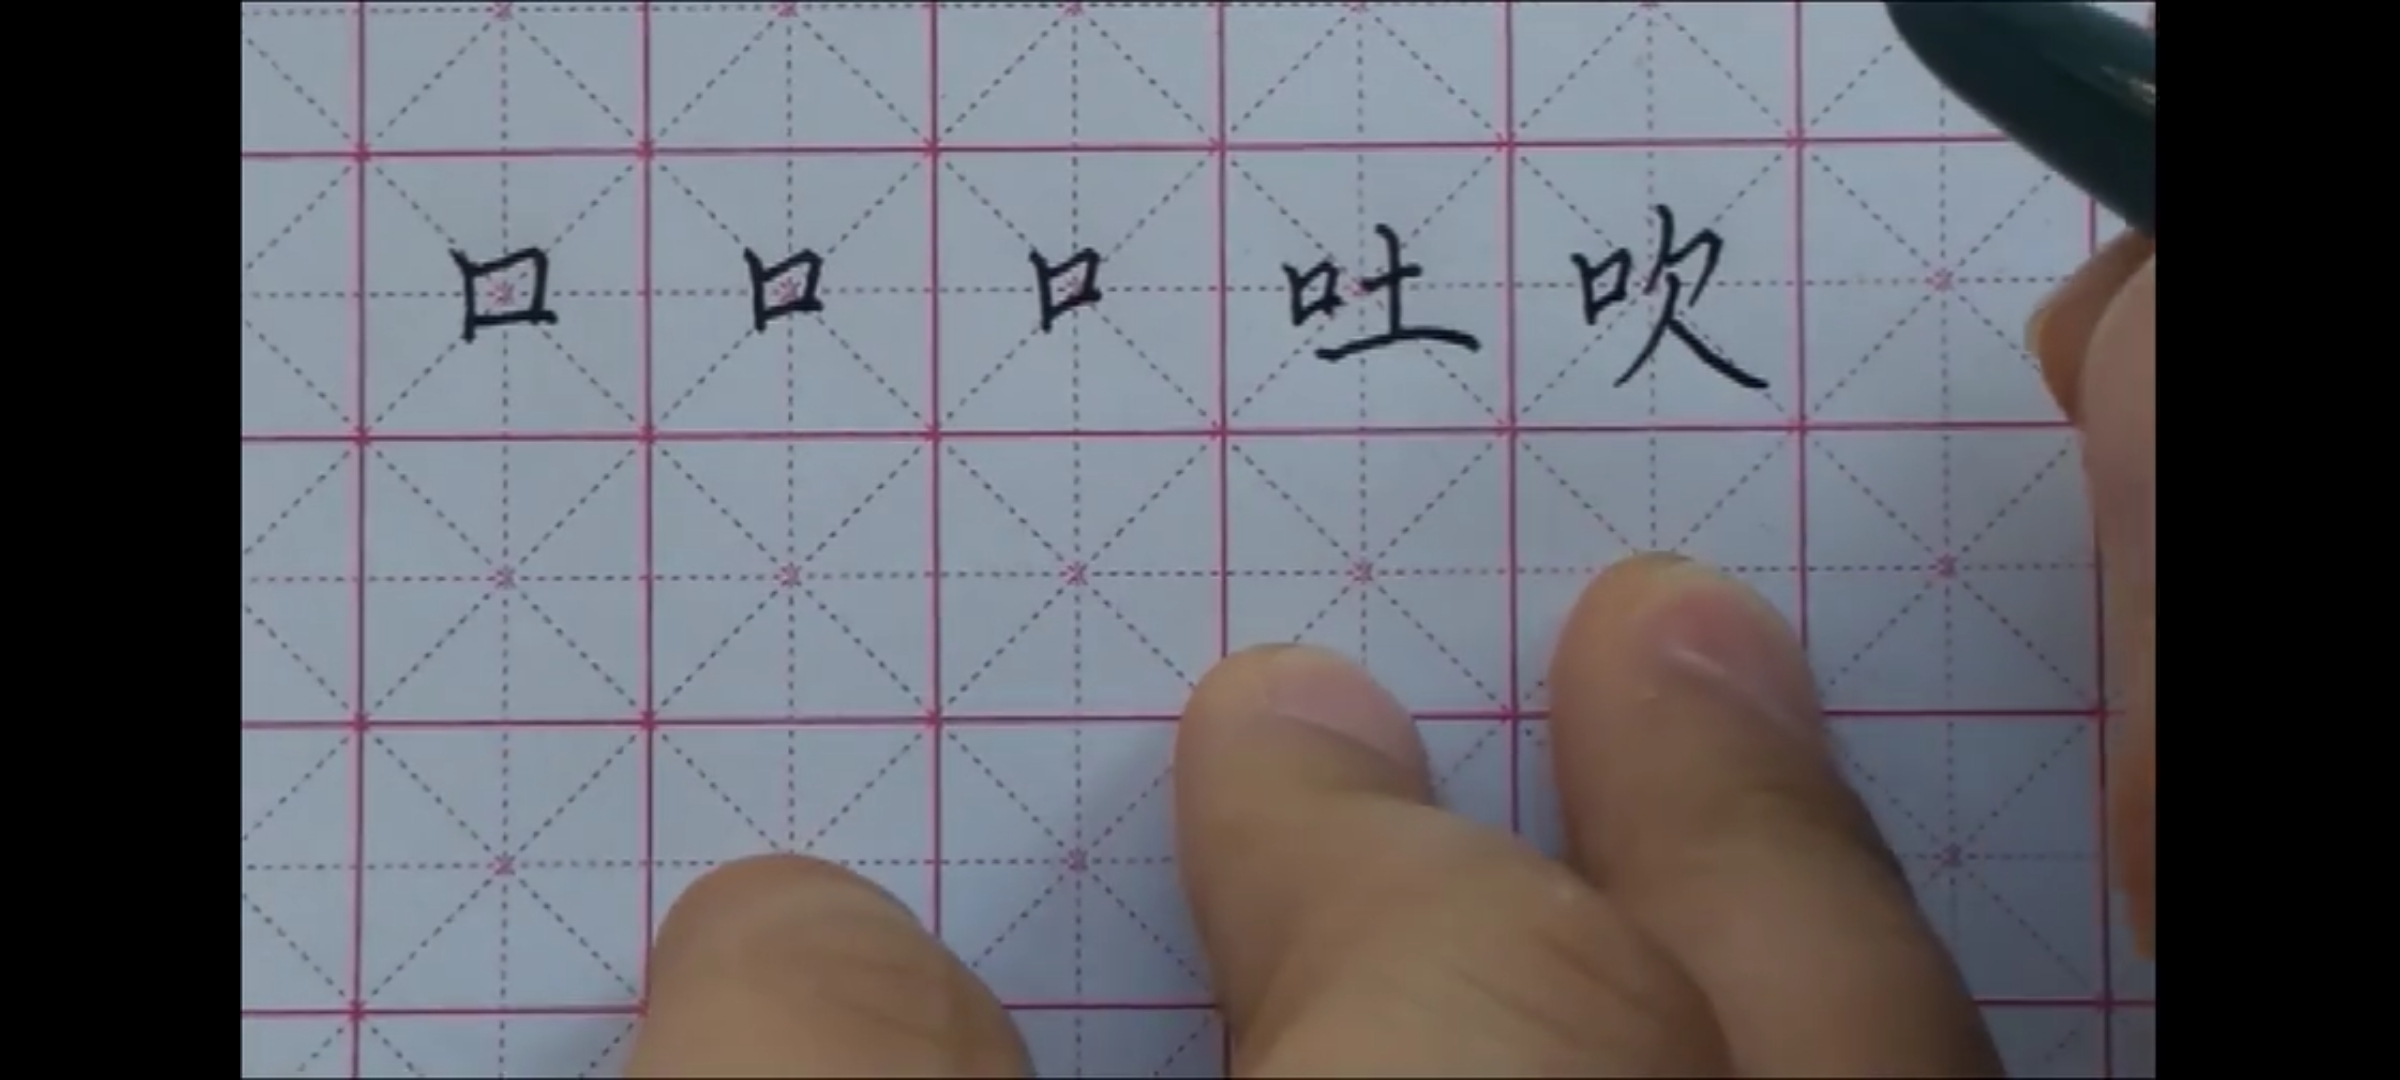 口 口 口 吐 吹